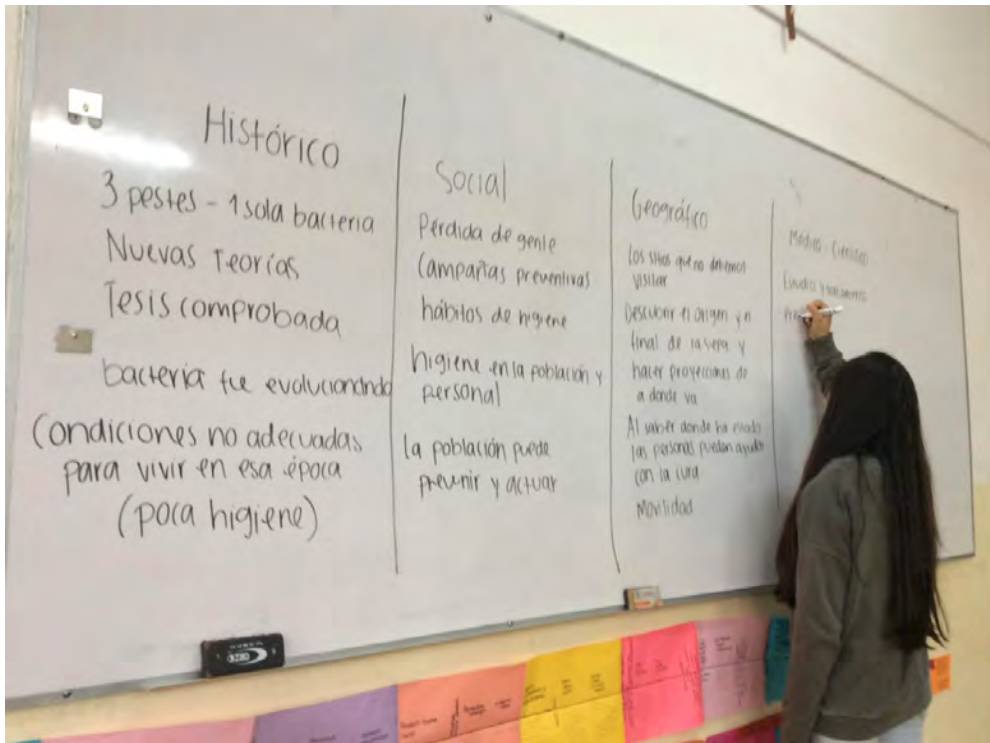 Histórico
3 pestes - 1 sola bacteria
Nuevas Teorías
Tesis comprobada
bacteria fue evolucionando
Condiciones no adecuadas
para vivir en esa época
(poca higiene)
Social
Pérdida de gente
Campañas preventivas
hábitos de higiene
higiene en la población y
personal
la población puede
prevenir y actuar
Geográfico
los sitios que no debemos
visitar
Descubrir el origen y el
final de la
y
hacer proyecciones de
a donde va
Al saber donde ha estado
las personas puedan ayudar
con la cura
Movilidad
Médico - Científico
Estudios y tratamientos